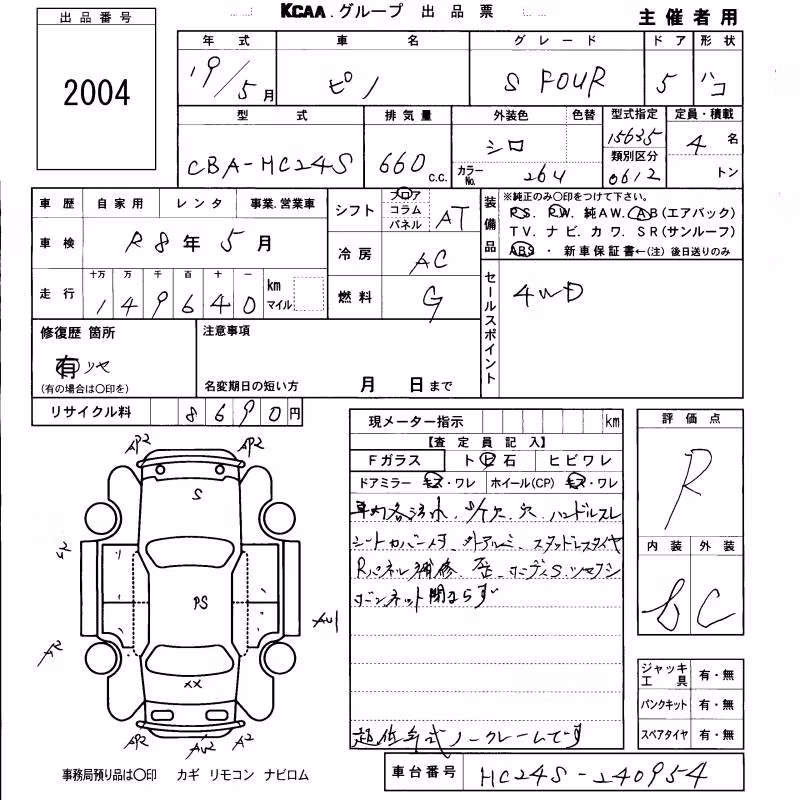 KCAA.グループ 出品票
主催者用
出品番号
2004
年式 車名 グレード ドア 形状
19/5月 ピノ S FOUR 5 ハコ
型式 排気量 外装色 色替 型式指定 定員・積載
CBA-HC24S 660 c.c. シロ 15635 4名
カラーNo. 264 類別区分 0612 トン
車歴 自家用 レンタ 事業.営業車
シフト フロア コラム パネル AT
装備品
※純正のみ○印をつけて下さい。
P.S. P.W. 純AW. AB(エアバック)
TV. ナビ. カワ. SR(サンルーフ)
ABS ・ 新車保証書←(注) 後日送りのみ
車検 R8年5月
冷房 AC
走行 十万 万 千 百 十 一 km マイル
149640
燃料 G
セールスポイント
4WD
修復歴 箇所
有 リヤ
(有の場合は○印を)
注意事項
名変期日の短い方 月 日まで
リサイクル料 8690円
現メーター指示 km
【査定員記入】
Fガラス ト ビ 石 ヒビワレ
ドアミラー キズ・ワレ ホイール(CP) キズ・ワレ
車内各汚れ、 欠、穴、ハンドルスレ
シートカバー付、外アルミ、スタッドレスタイヤ
Rパネル補修、歪、ボディS、
ボンネット閉まらず
超低年式ノークレームです
評価点
R
内装 外装
b C
ジャッキ工具 有・無
パンクキット 有・無
スペアタイヤ 有・無
AP2 AP2
S
A2
PS
AU1
A2
XX
AP2 AU2 A2
事務局預り品は○印 カギ リモコン ナビロム
車台番号 HC24S-240954